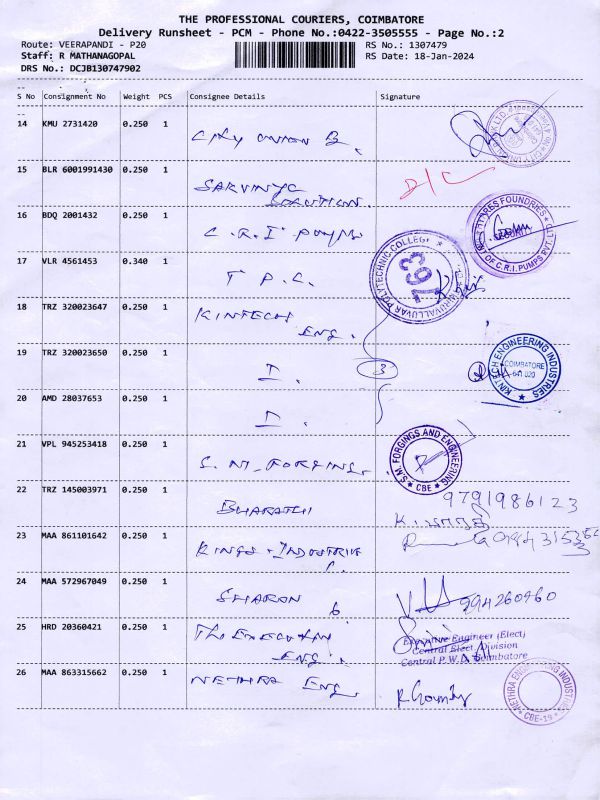 THE PROFESSIONAL COURIERS, COIMBATORE
Delivery Runsheet - PCM - Phone No.:0422-3505555 - Page No.:2
Route: VEERAPANDI - P20 RS No.: 1307479
Staff: R MATHANAGOPAL RS Date: 18-Jan-2024
DRS No.: DCJB130747902
S No Consignment No Weight PCS Consignee Details Signature
14 KMU 2731420 0.250 1 City Union B.
15 BLR 6001991430 0.250 1 SARVINYC D/C
SOLUTION.
16 BDQ 2001432 0.250 1 C.R.I PUMPS
OF C.R.I. PUMPS PVT. LTD
17 VLR 4561453 0.340 1 T P.C.
THIRUVALLUVAR POLYTECHNIC COLLEGE
18 TRZ 320023647 0.250 1 KINTECH
ENG.
19 TRZ 320023650 0.250 1 I. 3
KINTECH ENGINEERING INDUSTRIES
COIMBATORE
641 020
20 AMD 28037653 0.250 1 I.
21 VPL 945253418 0.250 1 S.M. FORGING.
S.M. FORGINGS AND ENGINEERING
CBE
22 TRZ 145003971 0.250 1 BHARATHI 9791986123
23 MAA 861101642 0.250 1 KINGS INDUSTRIE
24 MAA 572967049 0.250 1 SHARON
25 HRD 20360421 0.250 1 THE EXECUTIVE
ENG.
Executive Engineer (Elect)
Central Elect. Division
Central P.W.D. Coimbatore
26 MAA 863315662 0.250 1 NETHRA ENG.
NETHRA ENGINEERING INDUSTRIES
CBE-19